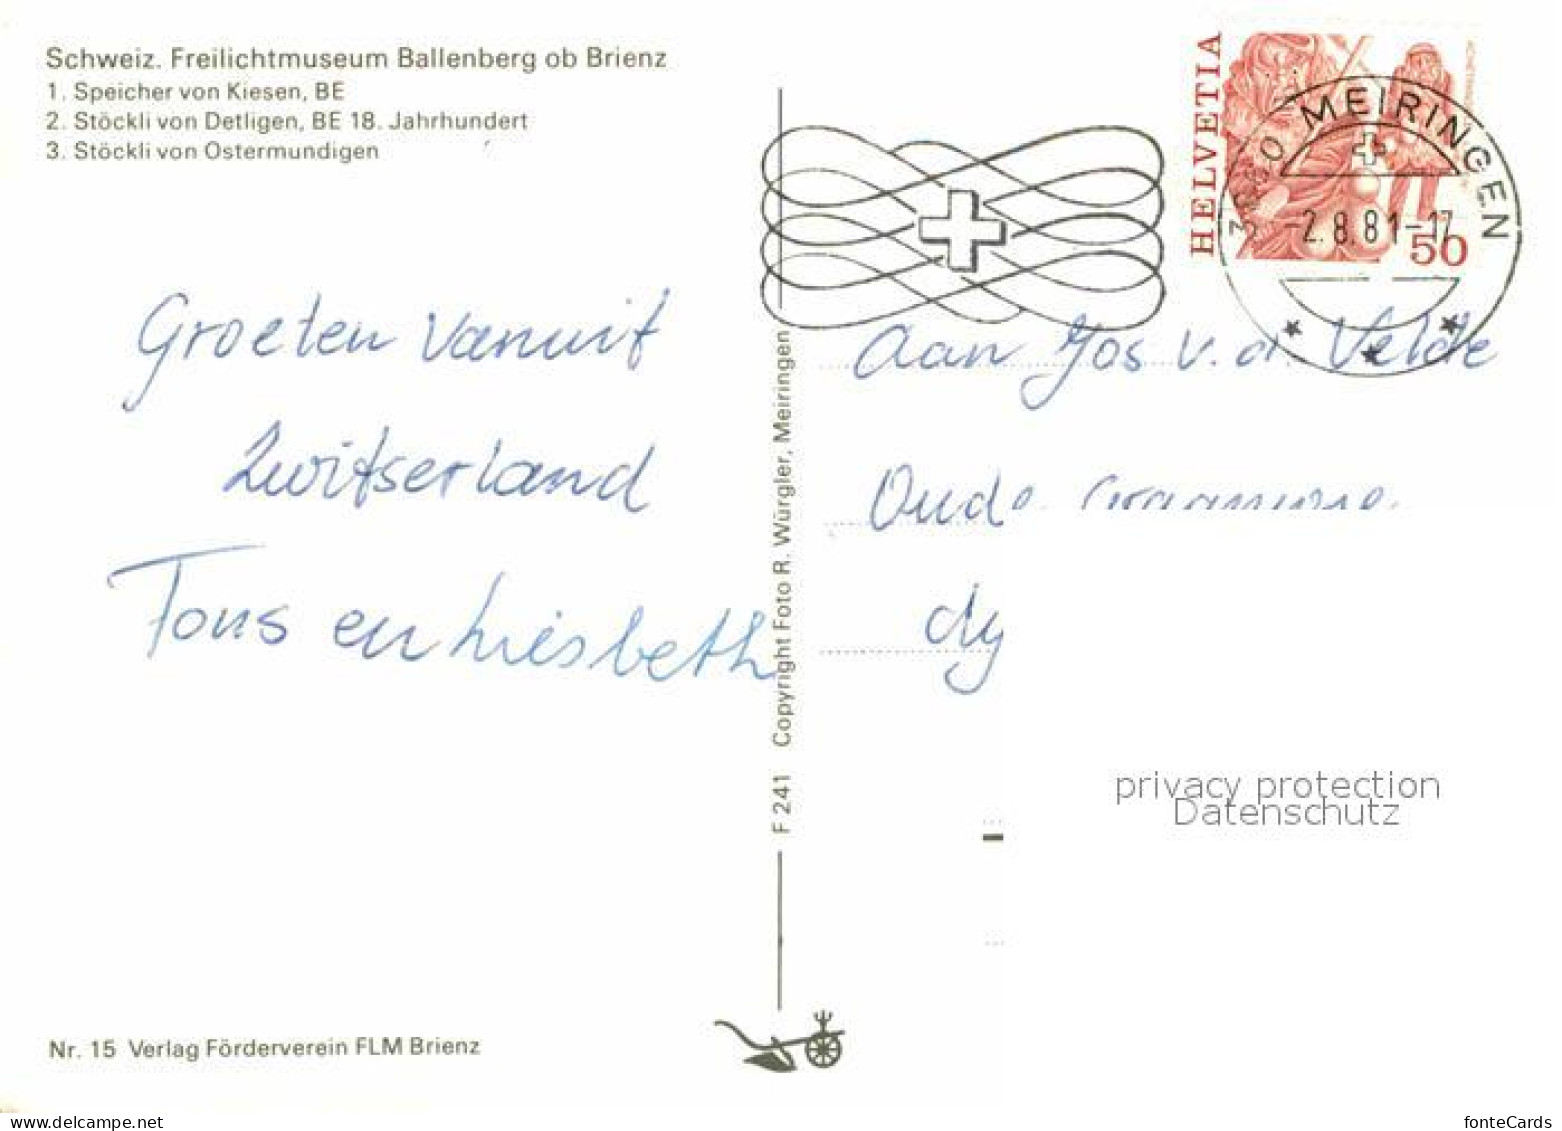 Schweiz. Freilichtmuseum Ballenberg ob Brienz
1. Speicher von Kiesen, BE
2. Stöckli von Detligen, BE 18. Jahrhundert
3. Stöckli von Ostermundigen
HELVETIA
50
3860 MEIRINGEN
-2.8.81-17
Groeten vanuit
Zwitserland
Tons en Liesbeth
Copyright Foto R. Würgler, Meiringen
F 241
Aan Jos v.d. Velde
Oude
privacy protection
Datenschutz
Nr. 15 Verlag Förderverein FLM Brienz
www.delcampe.net
fonteCards